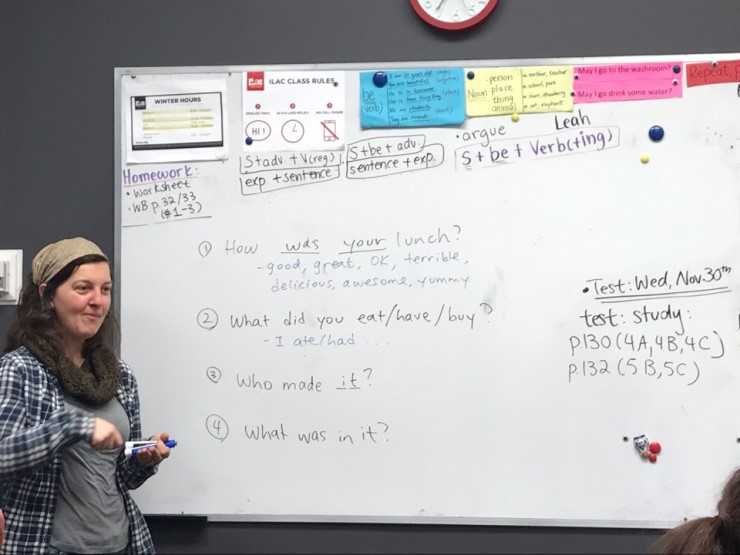 WINTER HOURS
ILAC CLASS RULES
HI!
be
(verb)
Noun
person
place
thing
animal
May I go to the washroom?
May I go drink some water?
Repeat,
Homework:
• worksheet
• WB p.32/33
(#1-3)
S+adv. + V(reg)
exp. + sentence
S+be+adv.
sentence + exp.
• argue
Leah
S + be + Verb(+ing)
① How was your lunch?
- good, great, OK, terrible,
delicious, awesome, yummy
② What did you eat/have/buy?
- I ate/had ...
③ Who made it?
④ What was in it?
• Test: Wed, Nov.30th
test: study:
p.130 (4A,4B,4C)
p.132 (5B,5C)